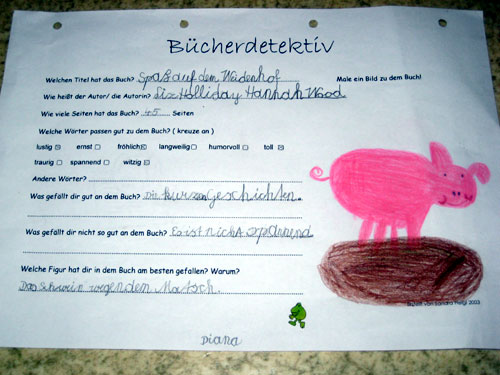 Bücherdetektiv
Welchen Titel hat das Buch? Spaß auf dem Weidenhof Male ein Bild zu dem Buch!
Wie heißt der Autor/ die Autorin? Liz Holliday Hannah Wood
Wie viele Seiten hat das Buch? 45 Seiten
Welche Wörter passen gut zu dem Buch? ( kreuze an )
lustig ernst fröhlich langweilig humorvoll toll
traurig spannend witzig
Andere Wörter?
Was gefällt dir gut an dem Buch? Die kurzen Geschichten.
Was gefällt dir nicht so gut an dem Buch? Es ist nicht spannend
Welche Figur hat dir in dem Buch am besten gefallen? Warum?
Das Schwein wegen dem Matsch.
von Sandra 2003
Diana